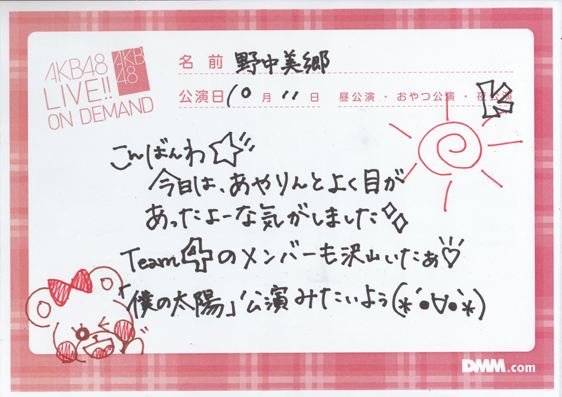 AKB48
LIVE!!
ON DEMAND
AKB
48
名前 野中美郷
公演日 10月11日 昼公演・おやつ公演・夜公演
こんばんわ☆
今日は、あやりんとよく目が
あったよーな気がしました
Team4のメンバーも沢山いたぁ♡
「僕の太陽」公演みたいよぅ(*´●∀●`*)
DMM.com